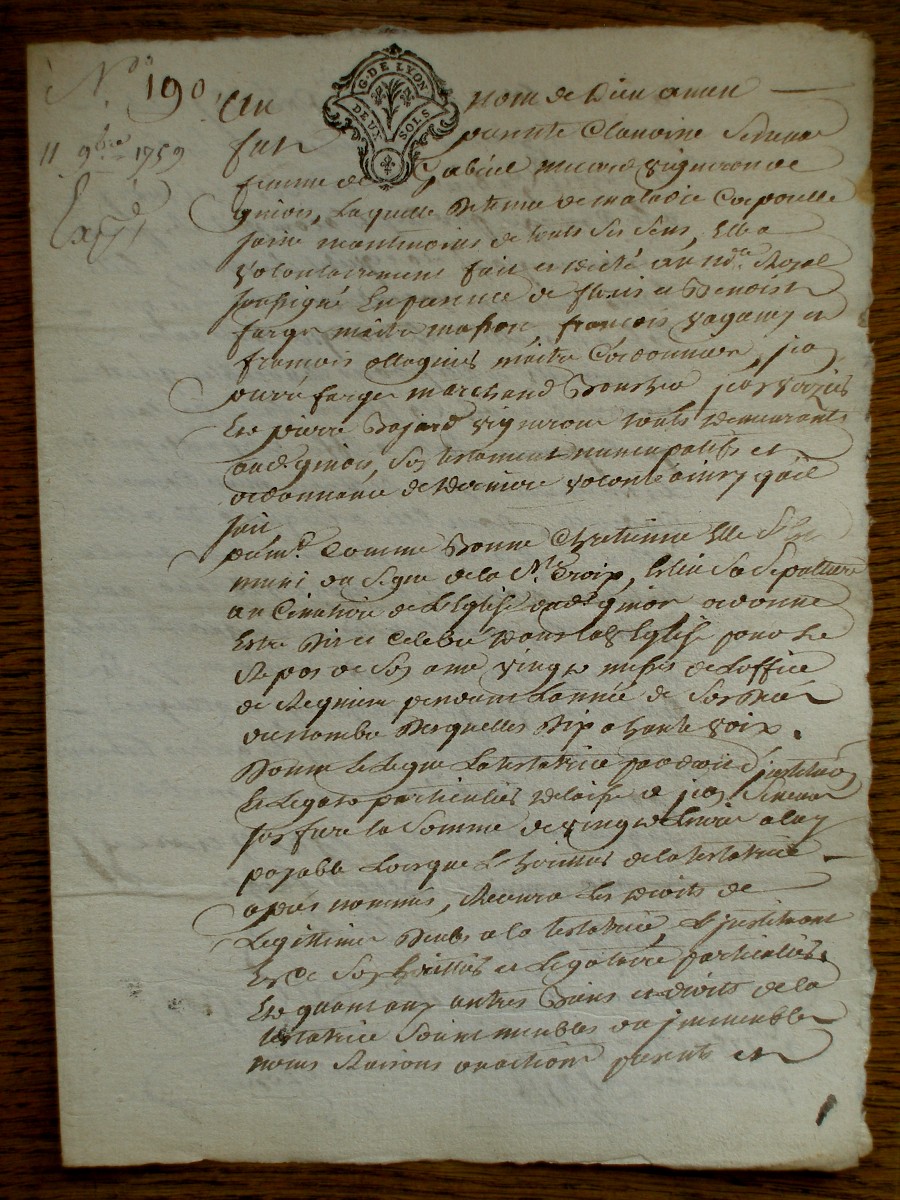 N° 190
11 9bre 1759
Expd
G. DE LYON
DEUX SOLS
Au nom de Dieu amen
fut presente Claudine
femme de Gabriel vigneron de
laquelle detenue de maladie Corporelle
saine neantmoins de touts ses sens, Elle a
volontairement fait et dicté au Royal
soussigné En presence de et Benoist
farge maitre masson, françois et
françois maitre Cordonnier, jean
pierre farge marchand
Et pierre vigneron touts demeurants
son testament nuncupatif et
ordonnance de derniere volonté ainsy qu'il
suit
premt Comme Bonne Chretienne Elle s'est
muni du signe de la Ste Croix, Eslu sa sepulture
au Cimetiere de L'Eglise ordonne
Estre dit et Celebré dans lad Eglise pour le
Repos de son ame vingt messes de L'office
de Requiem pendant L'année de son decés
du nombre desquelles dix a haute voix.
Donne et legue La testatrice par droit d'institution
Et Legats particuliers delaisse a jean
son frere la somme de vingt
payable Lorsque L'heritier de la testatrice
aprés nommé, Recevra les droits de
Legittime deubs a la testatrice, L'instituant
son heritier et Legataire particulier.
Et quant aux autres Biens et droits de la
testatrice soient meubles ou immeubles
noms Raisons et actions presents et